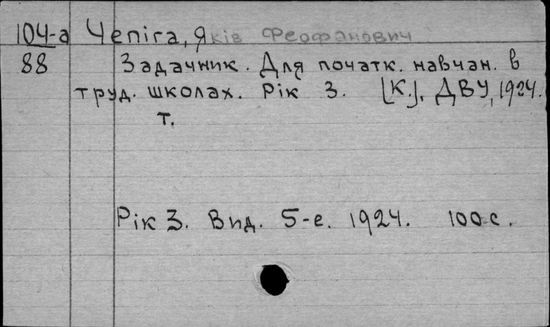 104-а Чепіга, Яків Феофанович
88 Задачник. Для початк. навчан. в
труд. школах. Рік 3. [К.], ДВУ, 1924.
т.
Рік 3. Вид. 5-е. 1924. 100 с.